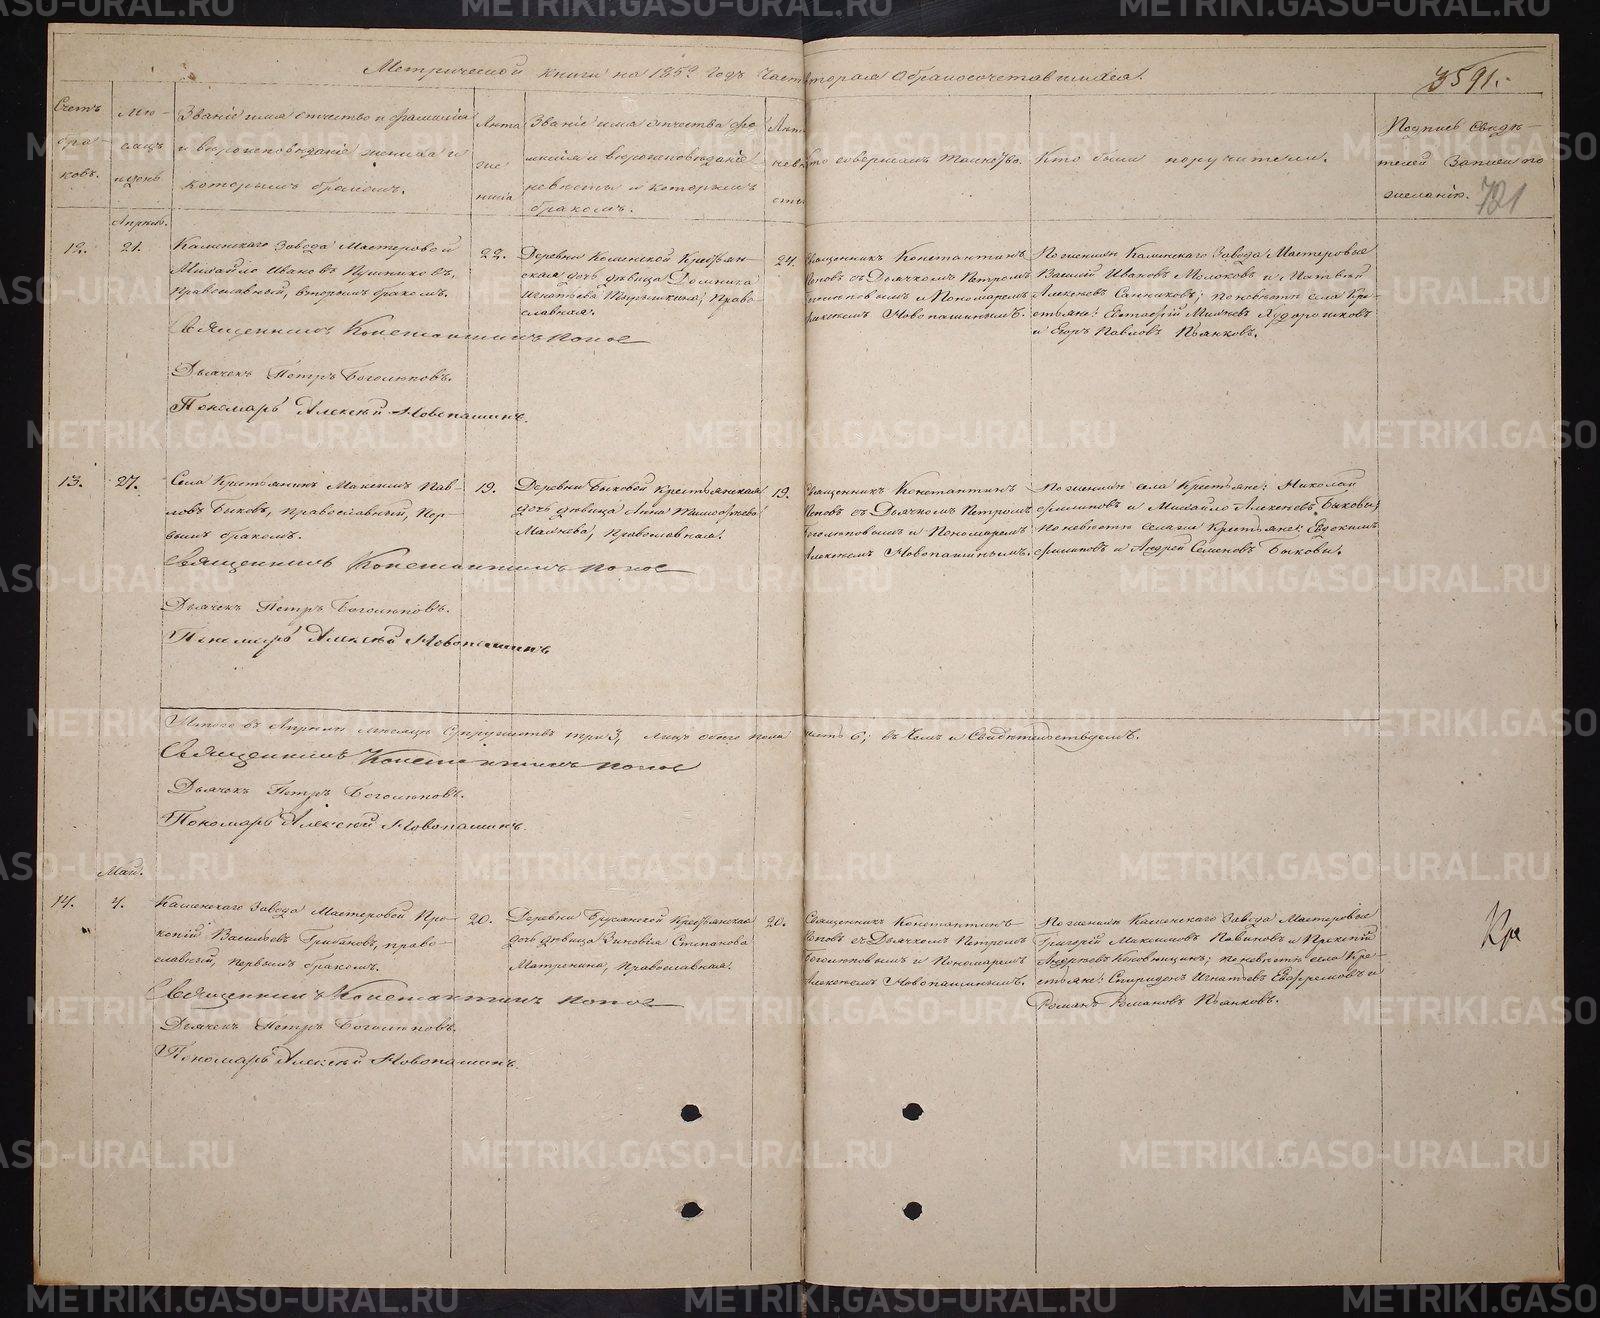 Метрической книги на 1852 годъ Часть вторая о бракосочетавшихся.
3591.
721
Счетъ браковъ.
Месяцъ и день
Званіе имя отчество и фамилія
и вѣроисповѣданіе жениха и
которымъ бракомъ.
Лѣта жениха
Званіе имя отчество фамилія и вѣроисповѣданіе
невѣсты и которымъ
бракомъ.
Лѣта невѣсты
Кто совершалъ таинство.
Кто были поручители.
Подпись свидѣтелей записи по
желанію.
Апрѣль.
12.
21.
Каменскаго завода Мастеровой
Михайло Ивановъ
православный, вторымъ бракомъ.
22.
Деревни Крестьянская дочь дѣвица Домника
Игнатьева православная.
24.
Священникъ Константинъ
Поповъ съ Дьячкомъ Петромъ
Боголюповымъ и Пономаремъ
Алексѣемъ Новопашинымъ.
По женихѣ Каменскаго завода Мастеровые
Василій Ивановъ и
Алексѣевъ Санниковъ; по невѣстѣ села Крестьяне:
и Егоръ Павловъ Пьянковъ.
Священникъ Константинъ Поповъ
Дьячекъ Петръ Боголюповъ.
Пономарь Алексѣй Новопашинъ.
13.
27.
Села Крестьянинъ Максимъ Павловъ Быковъ, православный, первымъ бракомъ.
19.
Деревни Быковой Крестьянская
дочь дѣвица Анна Тимофѣева
православная.
19.
Священникъ Константинъ
Поповъ съ Дьячкомъ Петромъ
Боголюповымъ и Пономаремъ
Алексѣемъ Новопашинымъ.
По женихѣ села Крестьяне: Николай
Филиповъ и Михайло Алексѣевъ Быковы;
по невѣстѣ Крестьяне: Евдокимъ
Филиповъ и Андрей Семеновъ Быковы.
Священникъ Константинъ Поповъ
Дьячекъ Петръ Боголюповъ.
Пономарь Алексѣй Новопашинъ
Итого въ Апрѣлѣ мѣсяцѣ супружествъ три 3, лицъ обоего пола шесть 6; въ чемъ и свидѣтельствуемъ.
Священникъ Константинъ Поповъ
Дьячекъ Петръ Боголюповъ.
Пономарь Алексѣй Новопашинъ.
Май.
14.
4.
Каменскаго завода Мастеровой Прокопій Васильевъ Грибановъ, православный, первымъ бракомъ.
20.
Деревни Брусянской Крестьянская
дочь дѣвица Зиновія Степанова
Матренина, православная.
20.
Священникъ Константинъ
Поповъ съ Дьячкомъ Петромъ
Боголюповымъ и Пономаремъ
Алексѣемъ Новопашинымъ.
По женихѣ Каменскаго завода Мастеровые
Григорій Максимовъ и
Андреевъ по невѣстѣ села Крестьяне: Спиридонъ Игнатьевъ Евфремовъ и
Романъ Романовъ Пьянковъ.
Священникъ Константинъ Поповъ
Дьячекъ Петръ Боголюповъ.
Пономарь Алексѣй Новопашинъ.
METRIKI.GASO-URAL.RU